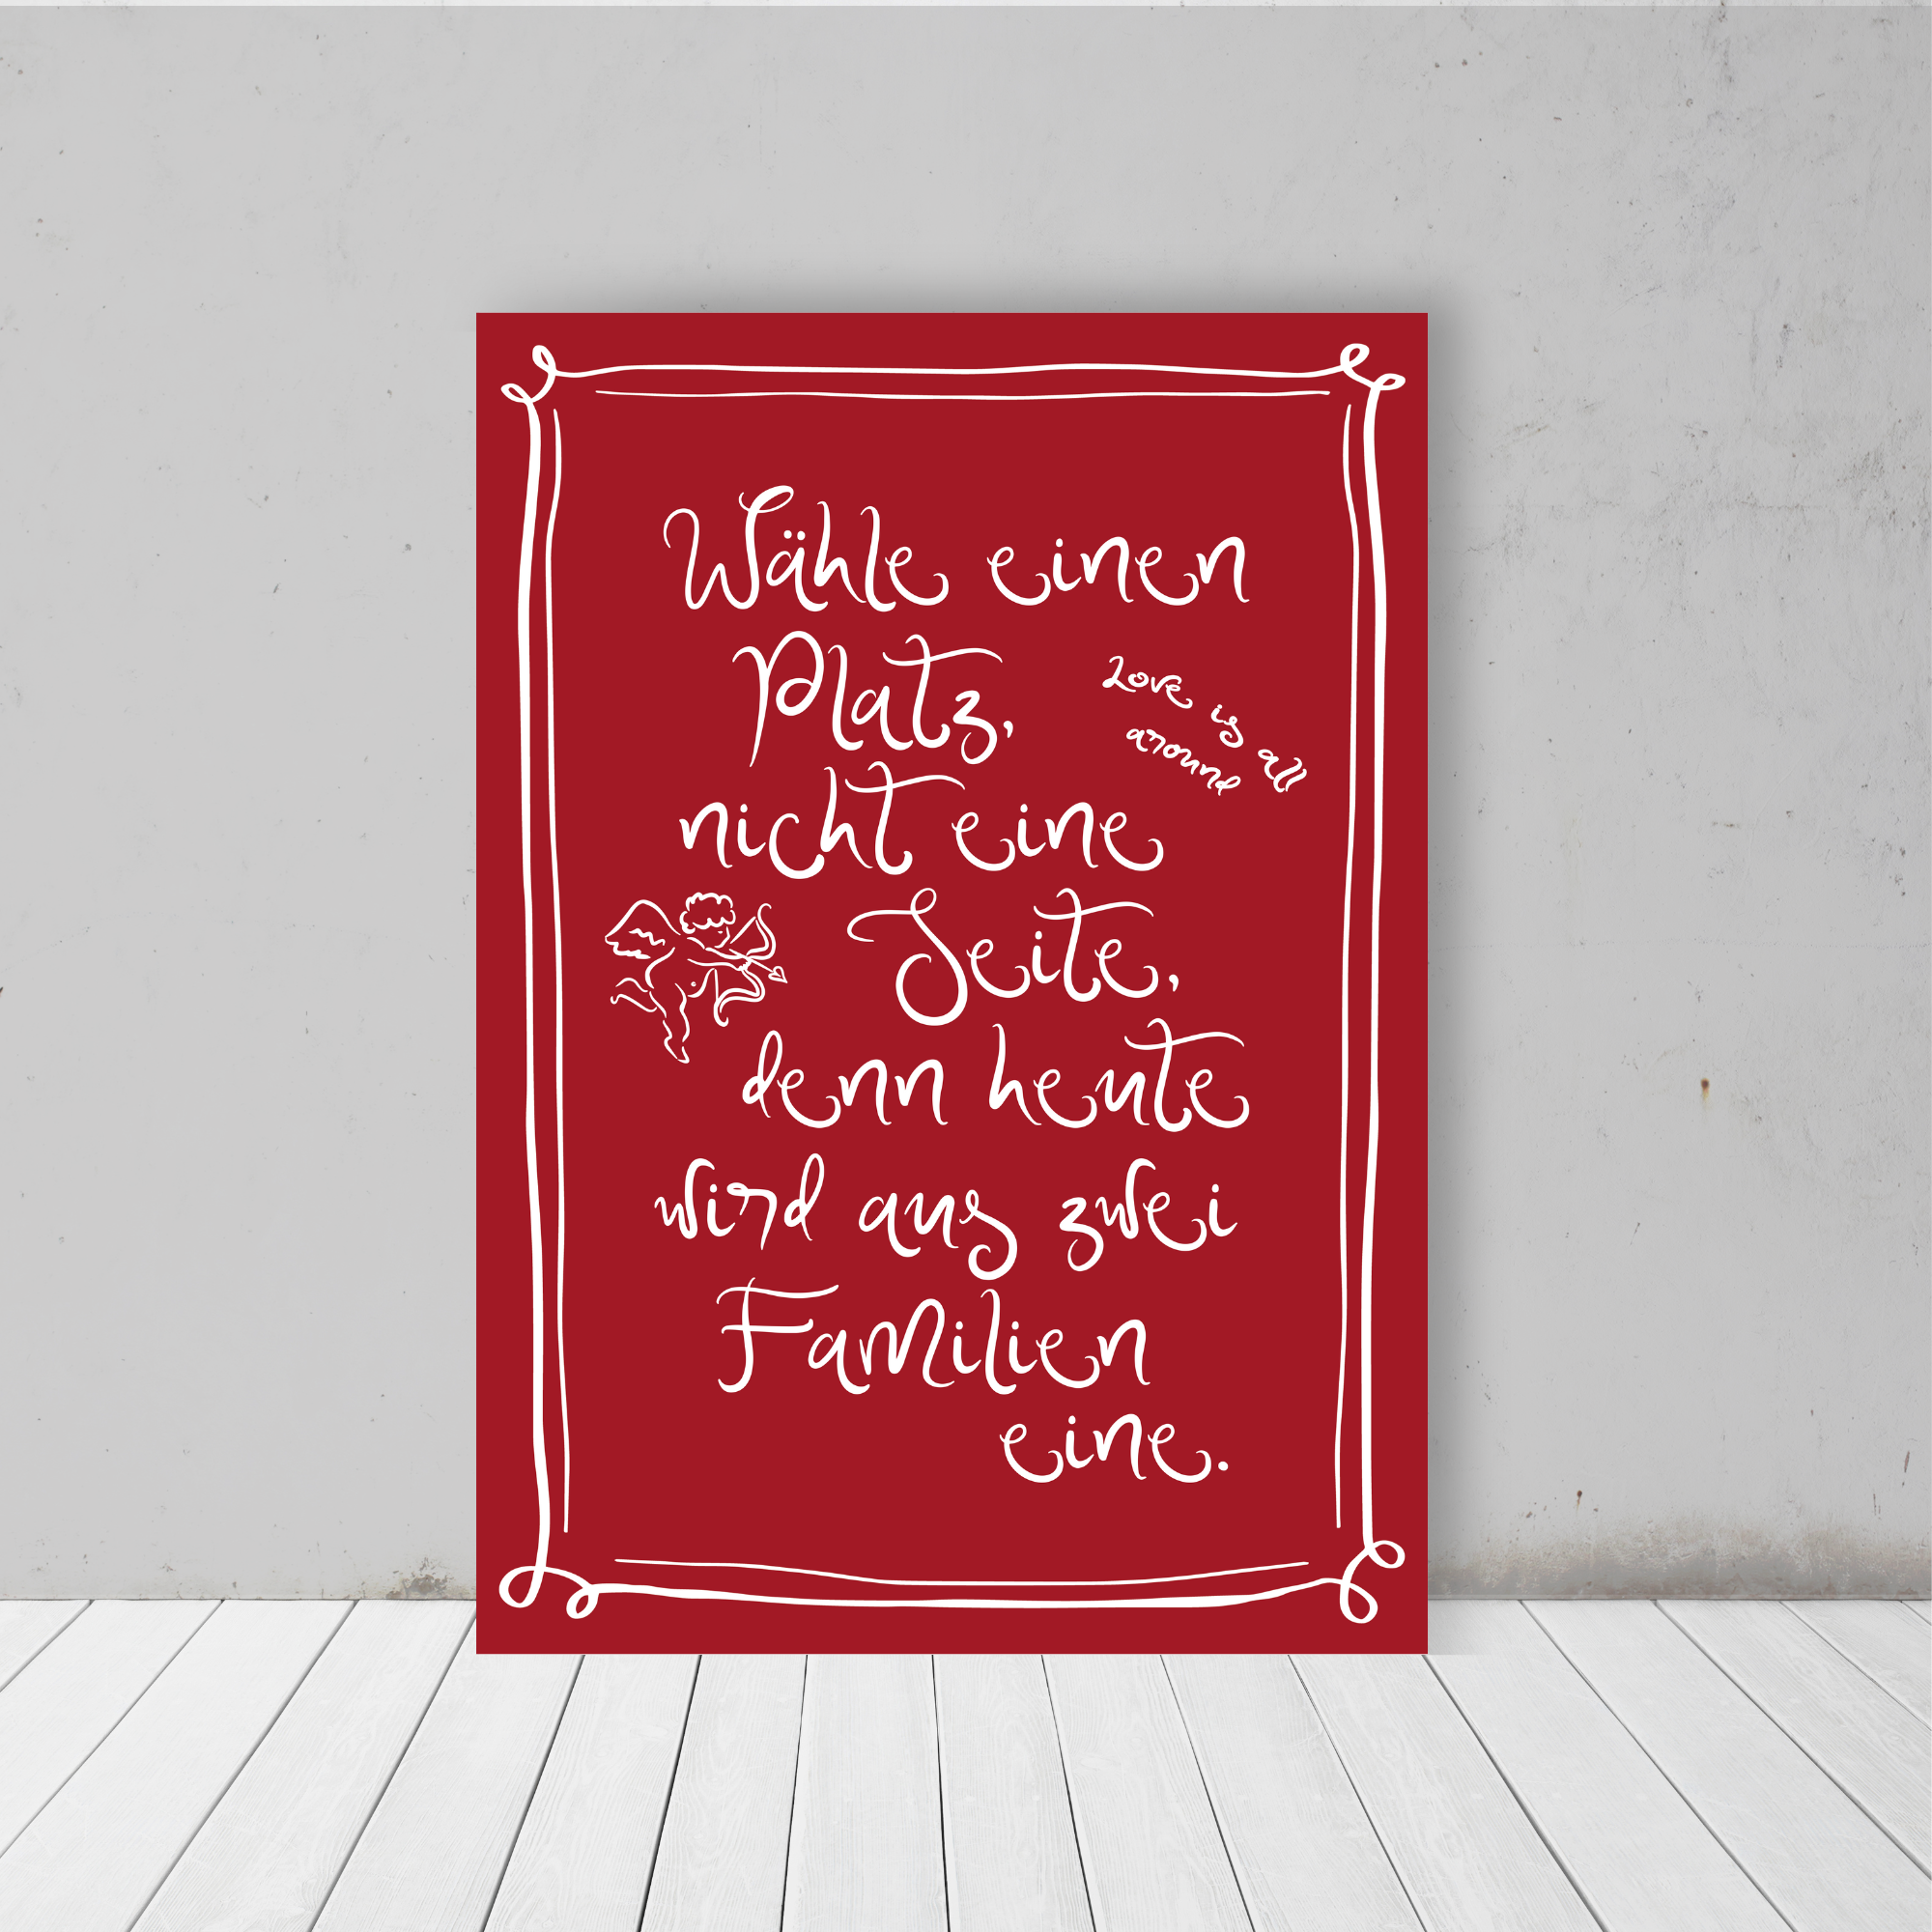 Wähle einen
Platz,
Love is all
around
nicht eine
Seite,
denn heute
wird aus zwei
Familien
eine.